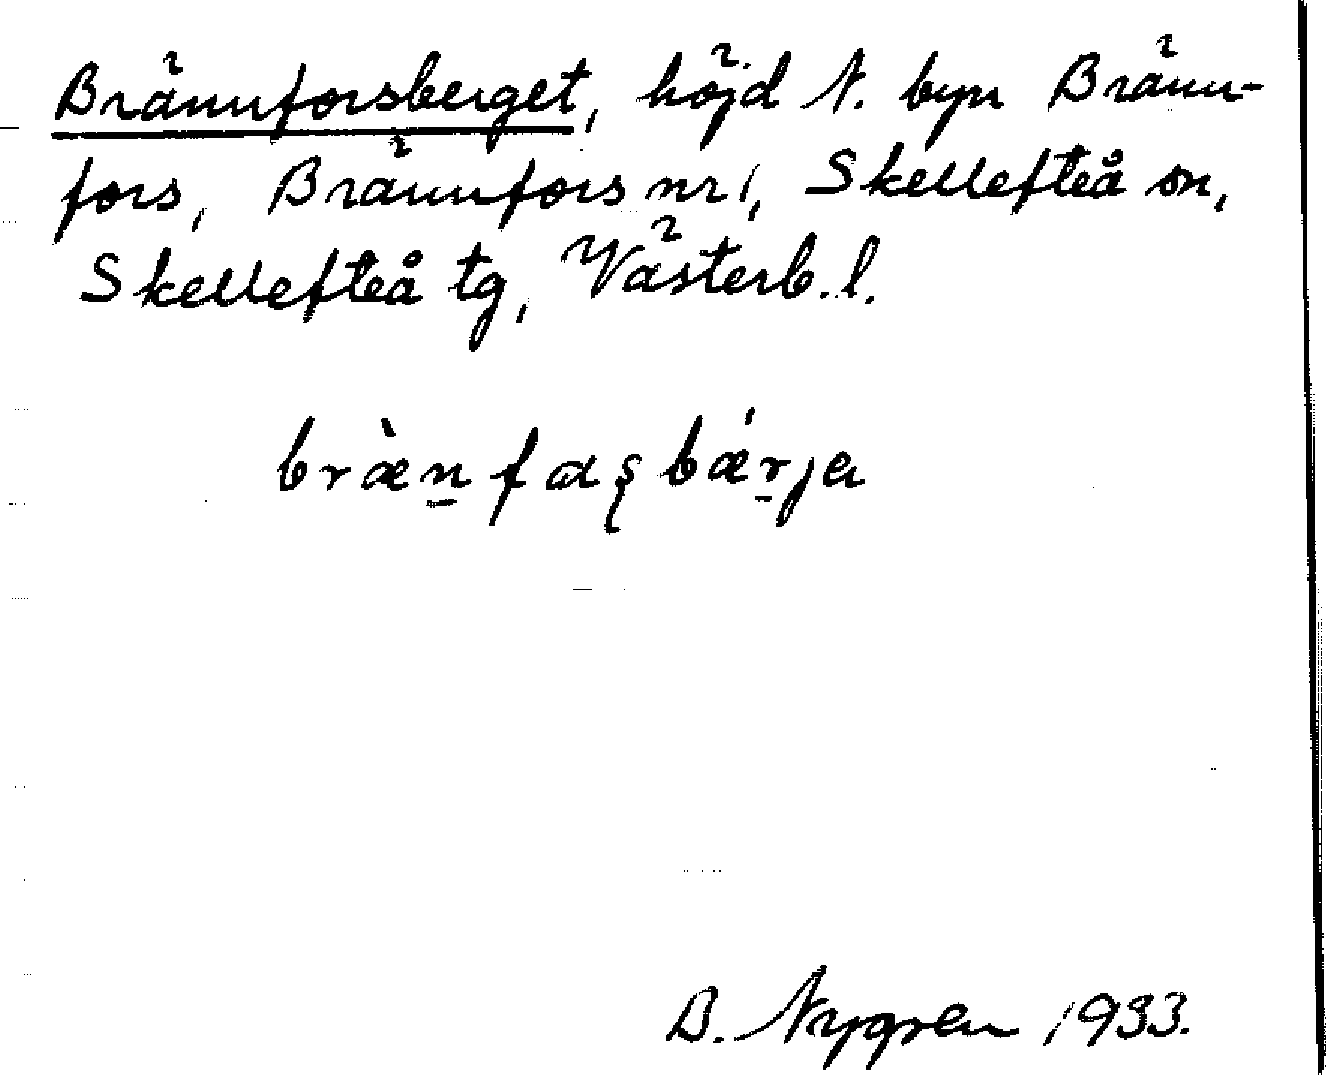 Brännforsberget, höjd N. byn Bränn-
fors, Brännfors nr 1, Skellefteå sn,
Skellefteå tg, Västerb. l.
bræ̀n̲fɑʂbǽr̲ja
B. Nygren 1933.